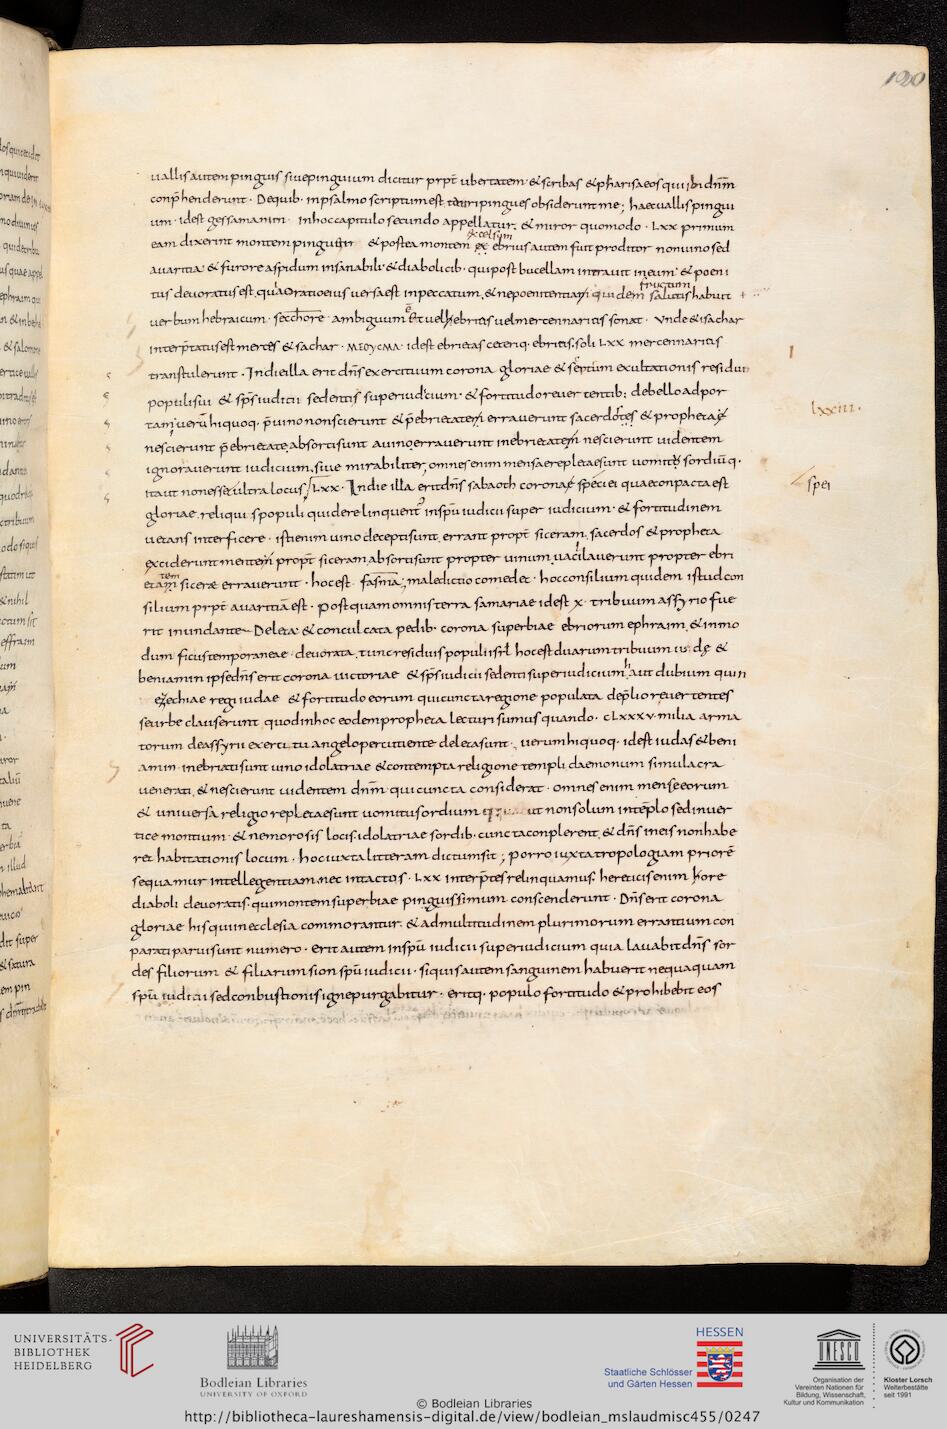 120
uallis autem pinguis siue pinguium dicitur prpt ubertatem · & scribas & pharisaeos qui ibi dnm
conphenderunt · De quib· in psalmo scriptum est tauri pingues obsiderunt me ; haec uallis pingui
um · idest gessamanim · in hoc capitulo secundo appellatur · & miror quomodo · LXX primum
eam dixerint montem pinguem & postea montem excelsum ebrius autem fuit proditor non uino sed
auaritia & furore aspidum insanabili · & diaboli cib· qui post bucellam intrauit in eum & poeni
tus deuoratus est quia oratio eius uersa est in peccatum · & ne poenitentiam quidem fructum salutis habuit
uerbum hebraicum · secchore · ambiguum et uel ebrius uel mercennarius sonat · unde & isachar
interptatus est merces & sachar · ΜΕΘΥCΜΑ · idest ebrietas ceteriq· ebrius · soli LXX mercennarius
transtulerunt · In die illa erit dns exercituum corona gloriae & sertum exultationis residui
populi sui & sps iudicii sedentis super iudicium · & fortitudo reuertentib; de bello ad por
tam ueru hi quoq· p uino nonscierunt & p ebrietate errauerunt sacerdotes & propheta
nescierunt p ebrietate absorti sunt a uino errauerunt in ebrietate nescierunt uidentem
ignorauerunt iudicium siue mirabiliter · omnes enim mensae repletae sunt uomitu sordiuq·
ita ut non esset ultra locus LXX · In die illa erit dns sabaoth corona spei quae conpacta est
gloriae reliquis populi qui derelinquentur in spu iudicii super iudicium · & fortitudinem
uetans interficere · isti enim uino decepti sunt errant propt siceram sacerdos & propheta
exciderunt mente propt siceram absorti sunt propter uinum uacilauerunt propter ebri
etatem sicerae errauerunt · hoc est · fasma ; maledictio comedet · hoc consilium quidem istud con
silium prpt auaritia est · Postquam omnis terra samariae idest x· tribuum assyrio fue
rit inundante Deleta & conculcata pedib· corona superbiae ebriorum ephraim & in mo
dum ficus temporaneae deuorata tunc residuis populi isrl hoc est duarum tribuum iudae &
beniamin ipse dns erit corona uictoriae & sps iudicii sedenti super iudicium haut dubium quin
ezechiae regi iudae & fortitudo eorum qui cuncta regione populata de plio reuertentes
se urbe clauserunt quod in hoc eodem propheta lecturi sumus quando · CLXXXV· milia arma
torum de assyrii exercitu angelo percutiente deleta sunt · uerum hi quoq· idest iudas & beni
amin · inebriati sunt uino idolatriae & contempta religione templi daemonum simulacra
uenerati & nescierunt uidentem dnm qui cuncta considerat · omnes enim mensae eorum
& uniuersa religio repletae sunt uomitu sordium ut non solum in templo sed in uer
tice montium · & nemorosis locis idolatriae sordib· cuncta conplerent & dns in eis non habe
ret habitationis locum · hoc iuxta litteram dictum sit ; porro iuxta tropologiam priore
sequamur intellegentiam nec intactos · LXX interptes relinquamus · heretici sunt enim hore
diaboli deuorati · qui montem superbiae pinguissimum conscenderunt · Dns erit corona
gloriae his qui in ecclesia commorantur · & ad multitudinem plurimorum errantium con
parati parui sunt numero · erit autem in spu iudicii super iudicium quia lauabit dns sor
des filiorum & filiarum sion spu iudicii · si quis autem sanguinem habuerit nequaquam
spu iudicii sed conbustionis igne purgabitur · eritq· populo fortitudo & prohibebit eos
lxxiii·
spei
UNIVERSITÄTS-
BIBLIOTHEK
HEIDELBERG
Bodleian Libraries
UNIVERSITY OF OXFORD
HESSEN
Staatliche Schlösser
und Gärten Hessen
UNESCO
Organisation der
Vereinten Nationen für
Bildung, Wissenschaft,
Kultur und Kommunikation
Kloster Lorsch
Welterbestätte
seit 1991
© Bodleian Libraries
http://bibliotheca-laureshamensis-digital.de/view/bodleian_mslaudmisc455/0247